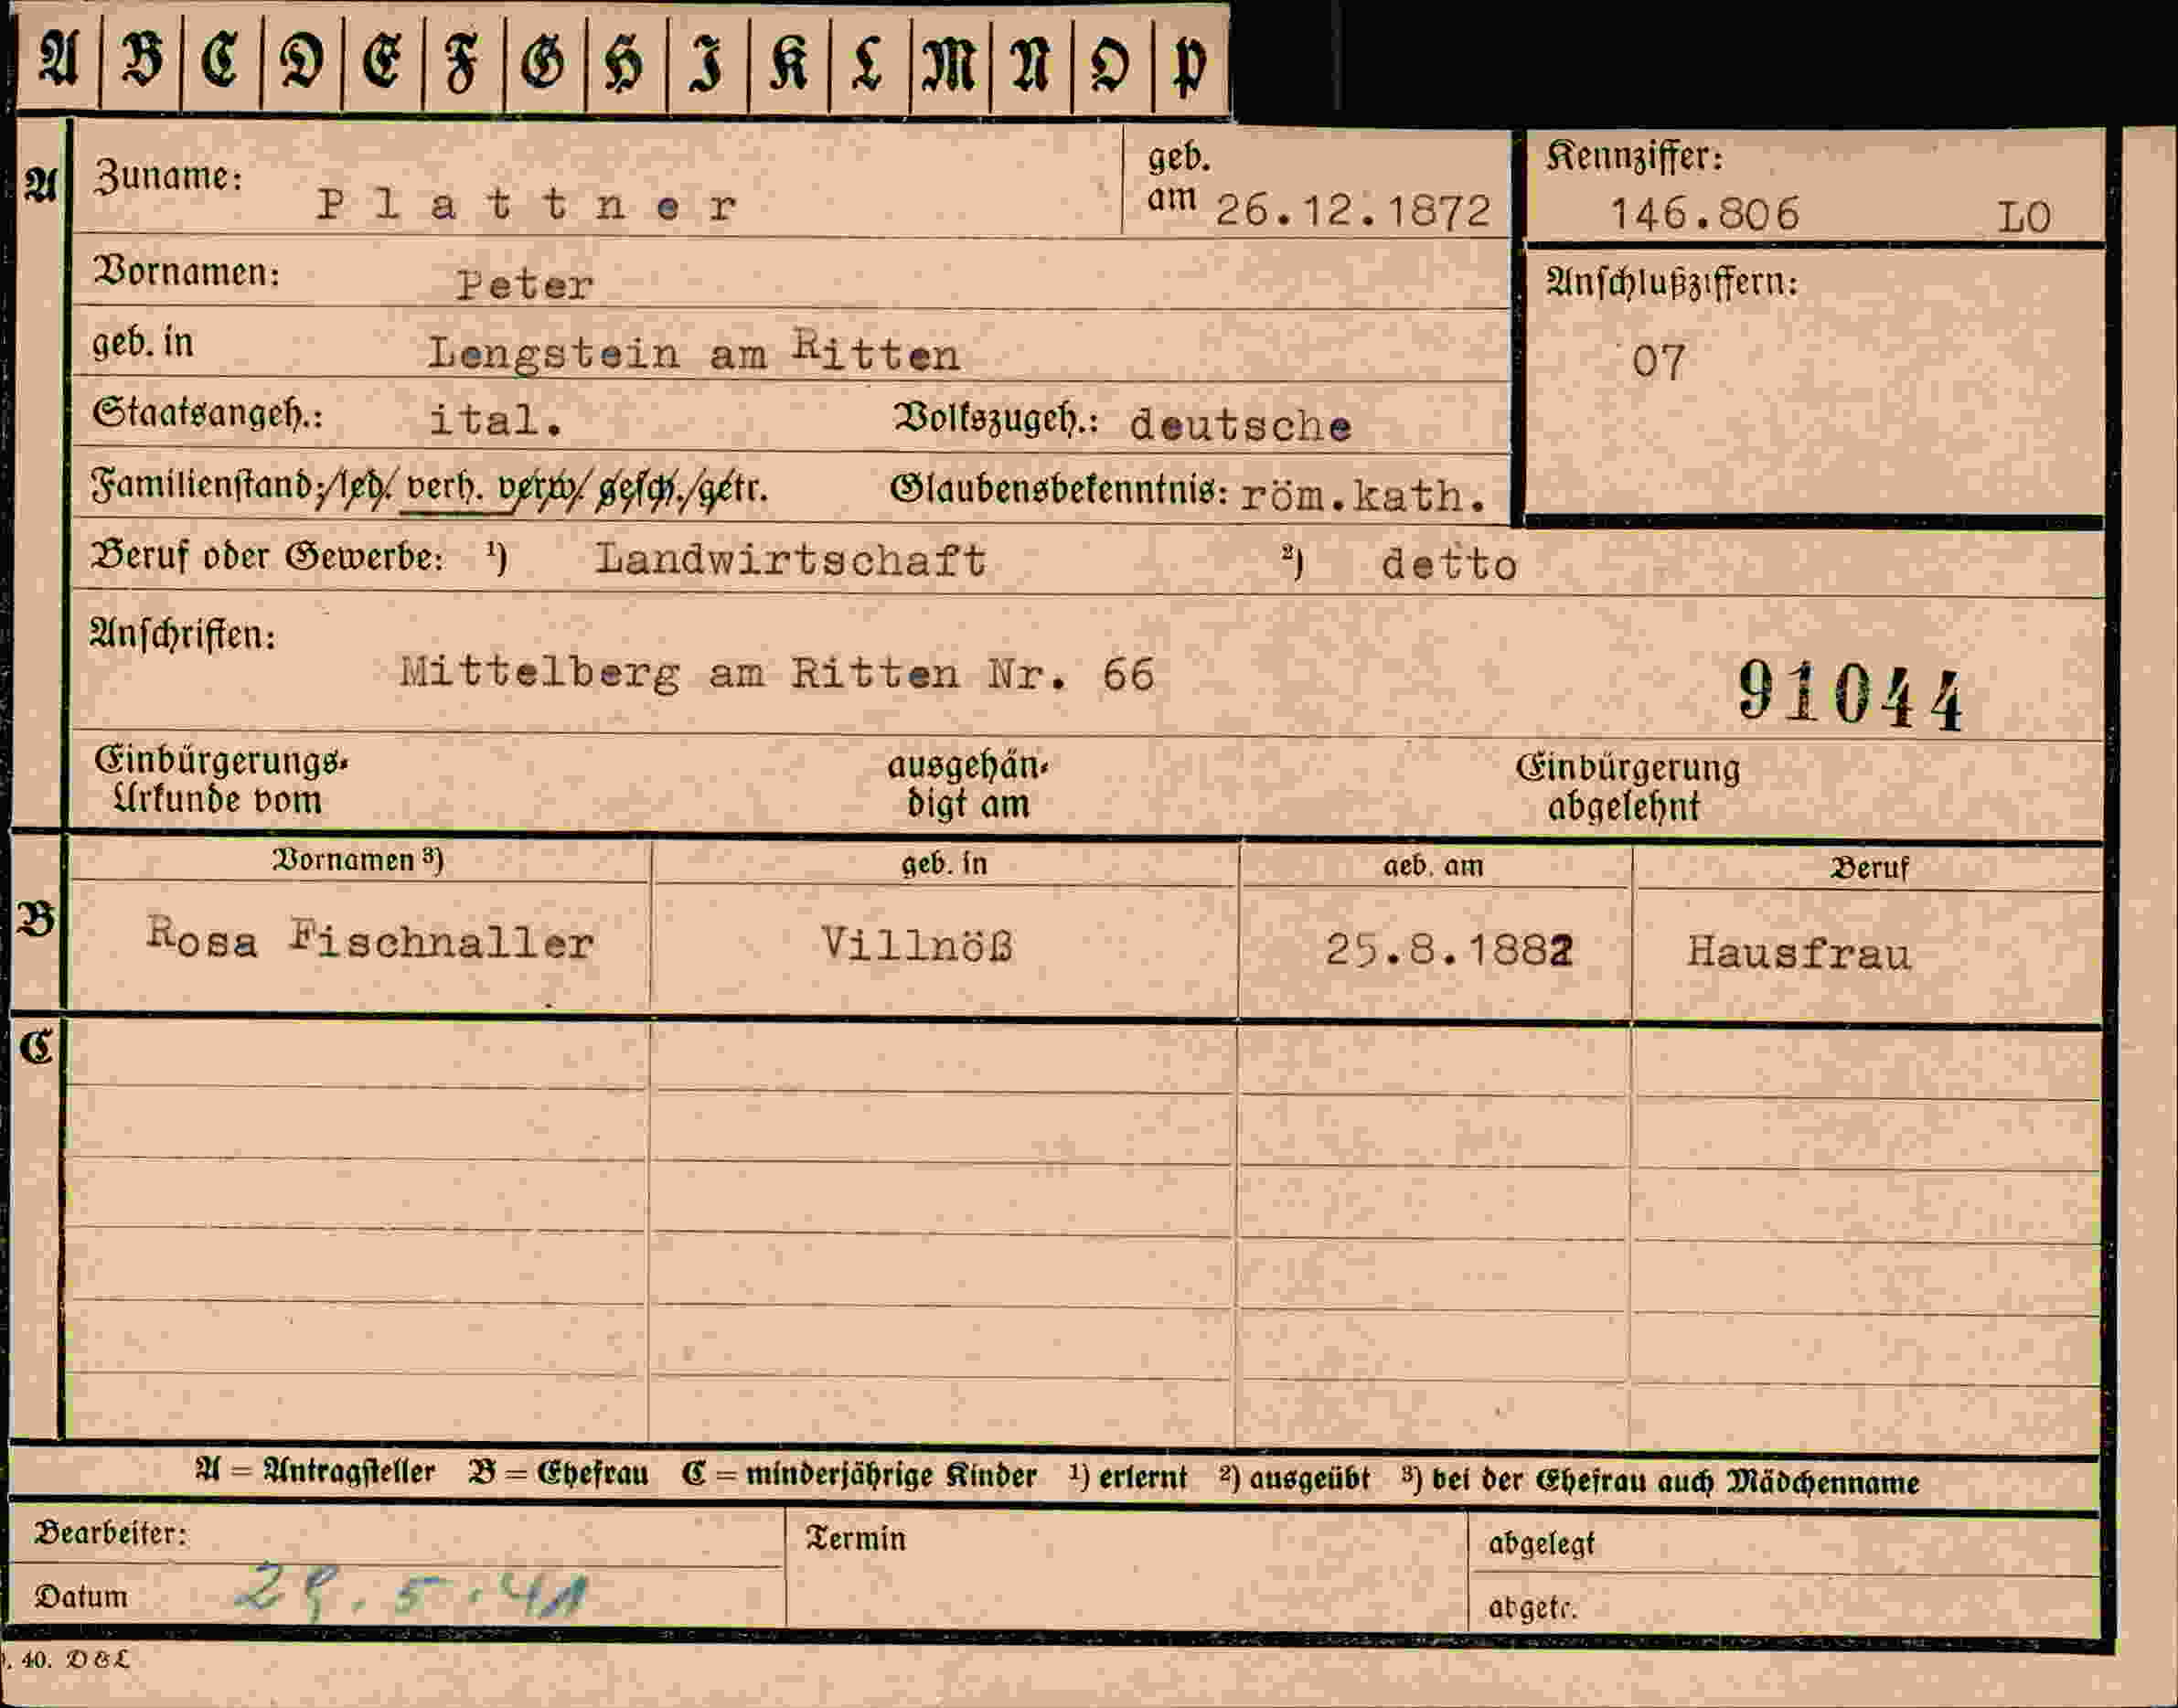 A B C D E F G H I K L M N O P
A Zuname: Plattner geb. am 26.12.1872 Kennziffer: 146.806 LO
Vornamen: Peter Anschlußziffern:
geb. in Lengstein am Ritten 07
Staatsangeh.: ital. Volkszugeh.: deutsche
Familienstand: led. verh. verw. gesch. getr. Glaubensbekenntnis: röm.kath.
Beruf oder Gewerbe: ¹) Landwirtschaft ²) detto
Anschriften:
Mittelberg am Ritten Nr. 66 91044
Einbürgerungs- ausgehän- Einbürgerung
Urkunde vom digt am abgelehnt
Vornamen ³) geb. in geb. am Beruf
B Rosa Fischnaller Villnöß 25.8.1882 Hausfrau
C
A = Antragsteller B = Ehefrau C = minderjährige Kinder ¹) erlernt ²) ausgeübt ³) bei der Ehefrau auch Mädchenname
Bearbeiter: Termin abgelegt
Datum 29.5.41 abgetr.
. 40. D & L